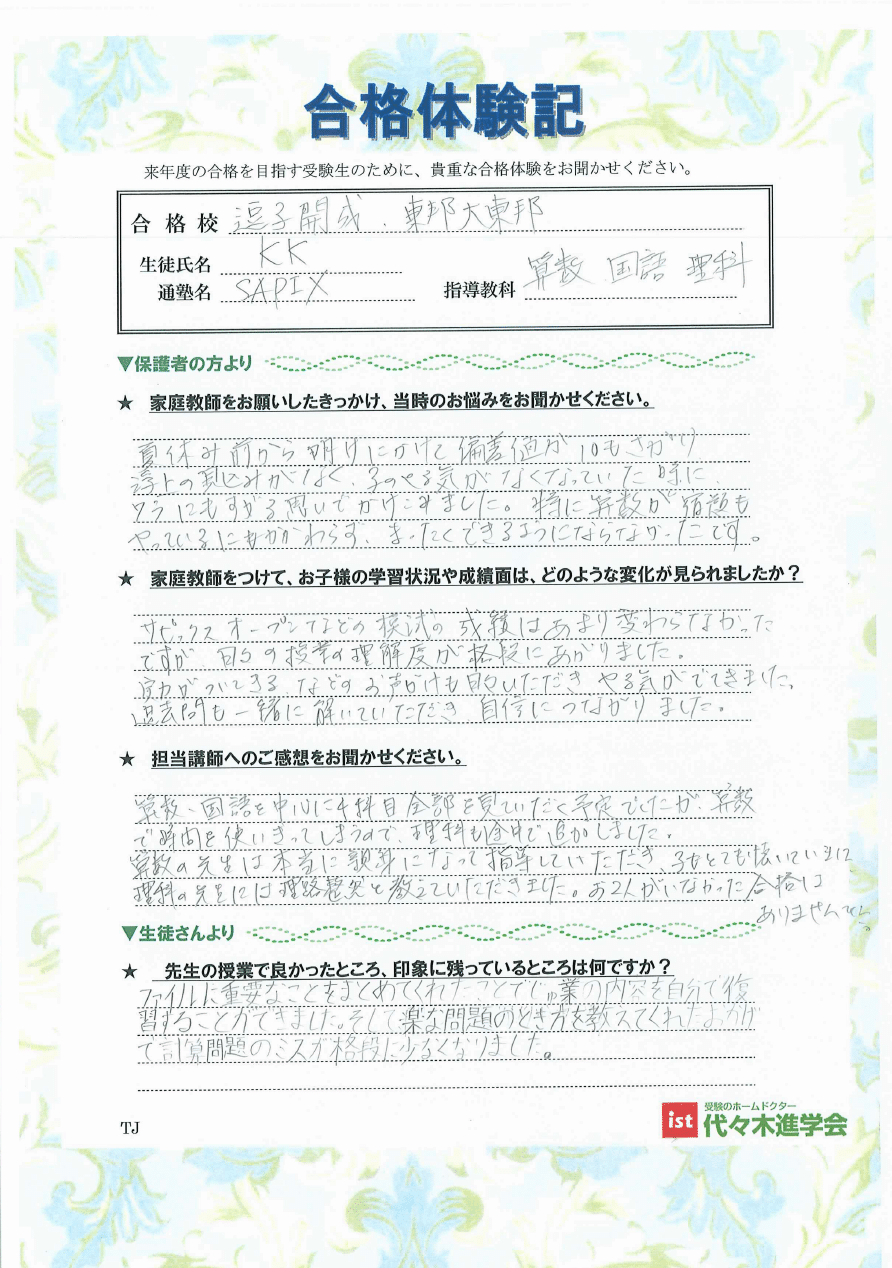 合格体験記
来年度の合格を目指す受験生のために、貴重な合格体験をお聞かせください。
合格校 逗子開成．東邦大東邦
生徒氏名 KK
通塾名 SAPIX 指導教科 算数 国語 理科
▼保護者の方より
★ 家庭教師をお願いしたきっかけ、当時のお悩みをお聞かせください。
夏休み前から明けにかけて偏差値が10もさがり
浮上の見込みがなく、子のやる気がなくなっていた時に、
ワラにもすがる思いでかけこみました。特に算数が宿題も
やっているにもかかわらず、まったくできるようにならなかったです。
★ 家庭教師をつけて、お子様の学習状況や成績面は、どのような変化が見られましたか？
サピックスオープンなどの模試の成績はあまり変わらなかった
ですが、日々の授業の理解度が格段にあがりました。
実力がついてきるなどのお声がけも日々いただきやる気がでてきました。
過去問も一緒に解いていただき自信につながりました。
★ 担当講師へのご感想をお聞かせください。
算数、国語を中心に4科目全部を見ていだく予定でしたが、算数
で時間を使いきってしまうので、理科も途中で追加しました。
算数の先生は本当に親身になって指導していただき、子もとても懐いていました
理科の先生には理路整然と教えていただきました。お2人がいなかった合格は
ありませんでした。
▼生徒さんより
★ 先生の授業で良かったところ、印象に残っているところは何ですか？
ファイルに重要なことをまとめてくれたことでじゅ業の内容を自分で復
習することができました。そして楽な問題のとき方を教えてくれたおかげ
で計算問題のミスが格段に少なくなりました。
TJ
ist 受験のホームドクター
代々木進学会